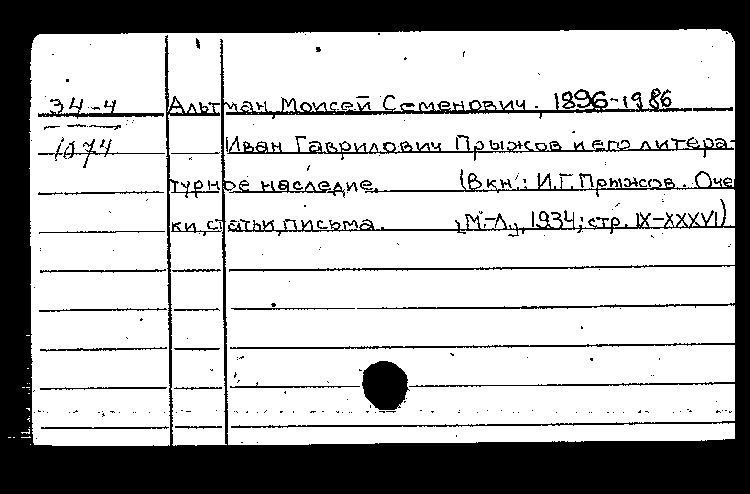 34-4 Альтман, Моисей Семенович, 1896-1986
1074 Иван Гаврилович Прыжов и его литера-
турное наследие. (В кн.: И.Г. Прыжов. Оче
ки, статьи, письма. [М.-Л.], 1934; стр. IX-XXXVI)